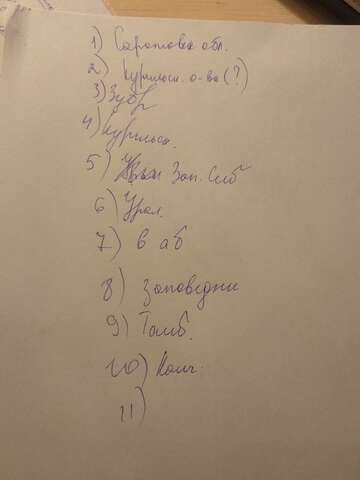 1) Саратовск обл.
2) Курильск. о-ва (?)
3) Зубр
4) Курильск.
5) Зап. Сиб
6) Урал.
7) В аб
8) Заповедни
9) Тамб.
10)
11)